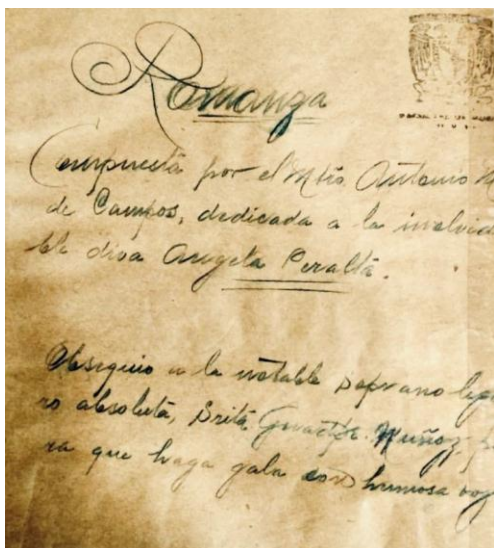 Romanza
Compuesta por el Mtro. Antonio
de Campos, dedicada a la inolvida
ble diva Angela Peralta.
Obsequio a la notable soprano lige
ro absoluta, Srita. Muñoz,
ra que haga gala con hermosa voz